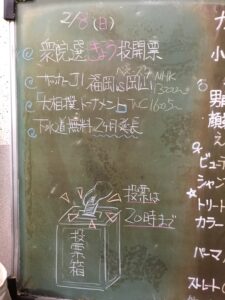 2/8(日)
衆院選きょう投開票
サッカーJ1 福岡vs岡山
ベススタ NHK
大相撲トーナメント TNC 16:05〜
下水道無料2ヶ月延長
投票は
20時まで
投票箱
カ
小
男
顔
え
ビュー
シャン
トリート
カラー
パーマ
ストレート